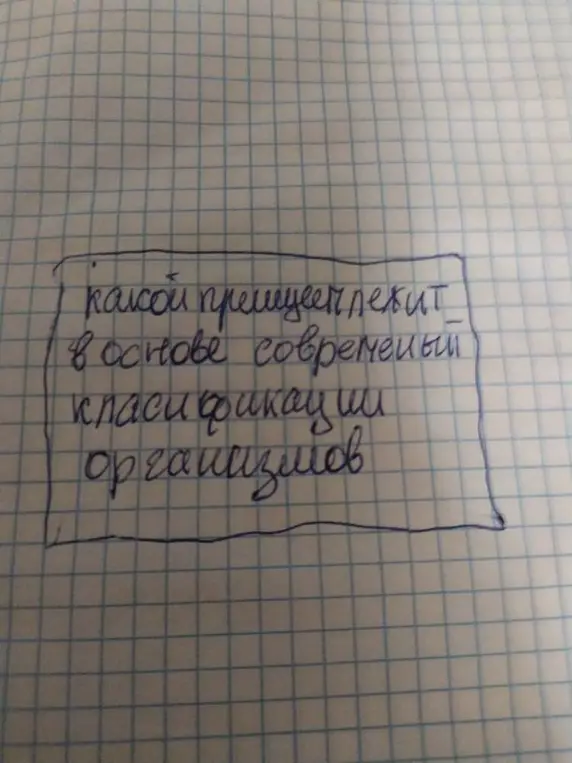 какой принцеп лежит
в основе современый
класификации
организмов